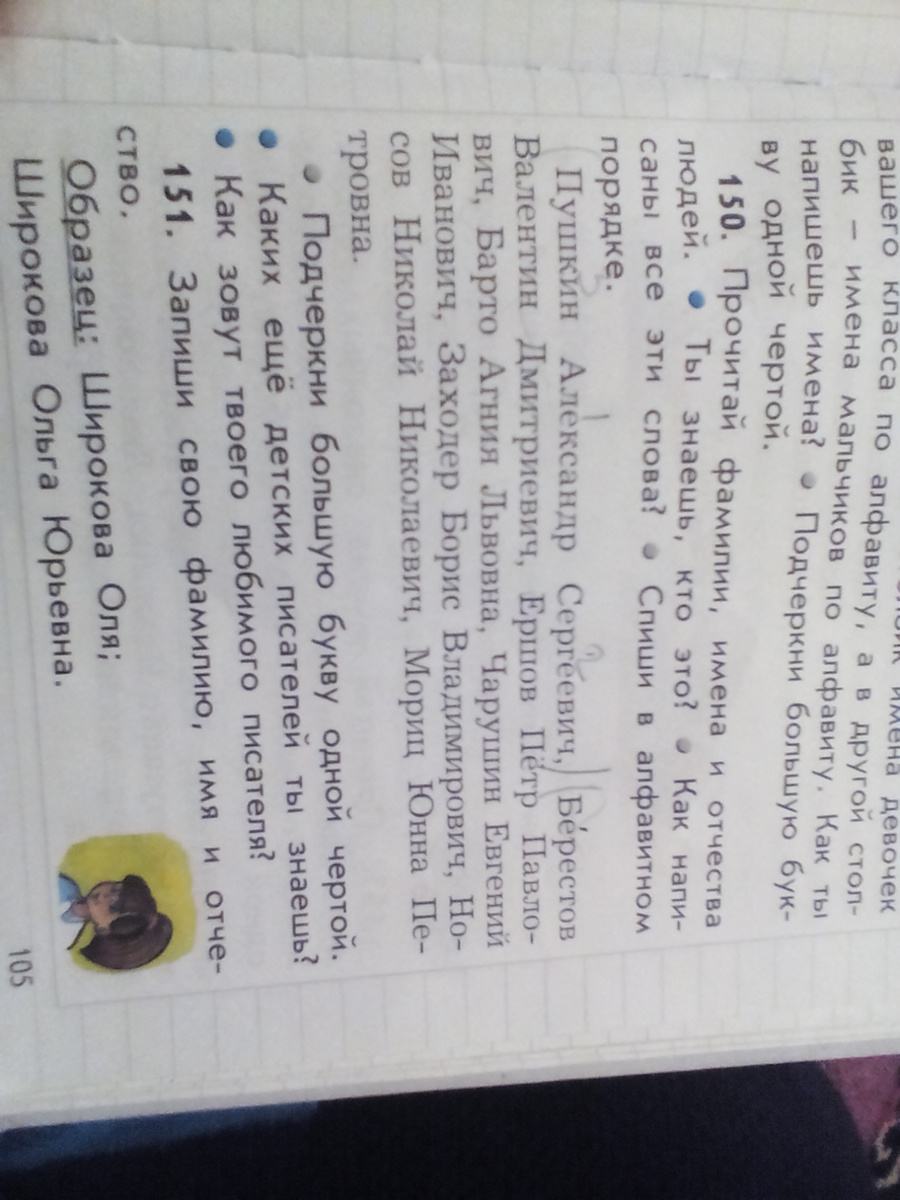 вашего класса по алфавиту, а в другой стол-
бик – имена мальчиков по алфавиту. Как ты
напишешь имена? ● Подчеркни большую бук-
ву одной чертой.
150. Прочитай фамилии, имена и отчества
людей. ● Ты знаешь, кто это? ● Как напи-
саны все эти слова? ● Спиши в алфавитном
порядке.
Пушкин Александр Сергеевич, Бе́рестов
Валентин Дмитриевич, Ершов Пётр Павло-
вич, Барто Агния Львовна, Чарушин Евгений
Иванович, Заходер Борис Владимирович, Но-
сов Николай Николаевич, Мориц Юнна Пе-
тровна.
● Подчеркни большую букву одной чертой.
● Каких ещё детских писателей ты знаешь?
● Как зовут твоего любимого писателя?
151. Запиши свою фамилию, имя и отче-
ство.
Образец: Широкова Оля;
Широкова Ольга Юрьевна.
105